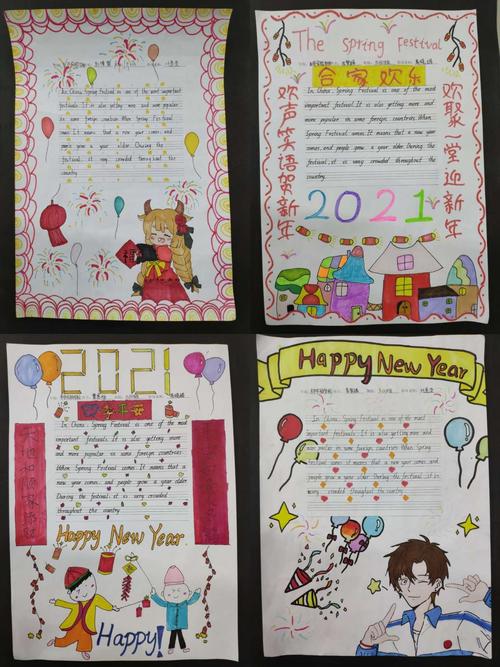 In China, Spring Festival is one of the most important
festivals. It is also getting more and more popular
in some foreign countries. When Spring Festival
comes. It means that a new year comes, and
people grow a year older. During the
festival, it is very crowded throughout the
country.
福
The Spring Festival
合家欢乐
欢声笑语贺新年
欢聚一堂迎新年
In China, Spring Festival is one of the most
important festival. It is also getting more and
more popular in some foreign countries. When
Spring Festival comes. It means that a new year
comes, and people grow a year older. During the
festival, it is very crowded throughout the
country.
2021
2021
平安
In China, Spring Festival is one of the most
important festivals. It is also getting more
and more popular in some foreign countries.
When Spring Festival comes. It means that a
new year comes, and people grow a year older.
During the festival, it is very crowded
throughout the country.
Happy New Year
Happy!
Happy New Year
In China, Spring Festival is one of the most
important festivals. It is also getting more and
more popular in some foreign countries. When Spring
Festival comes. It means that a new year comes, and
people grow a year older. During the festival, it is very
crowded throughout the country.